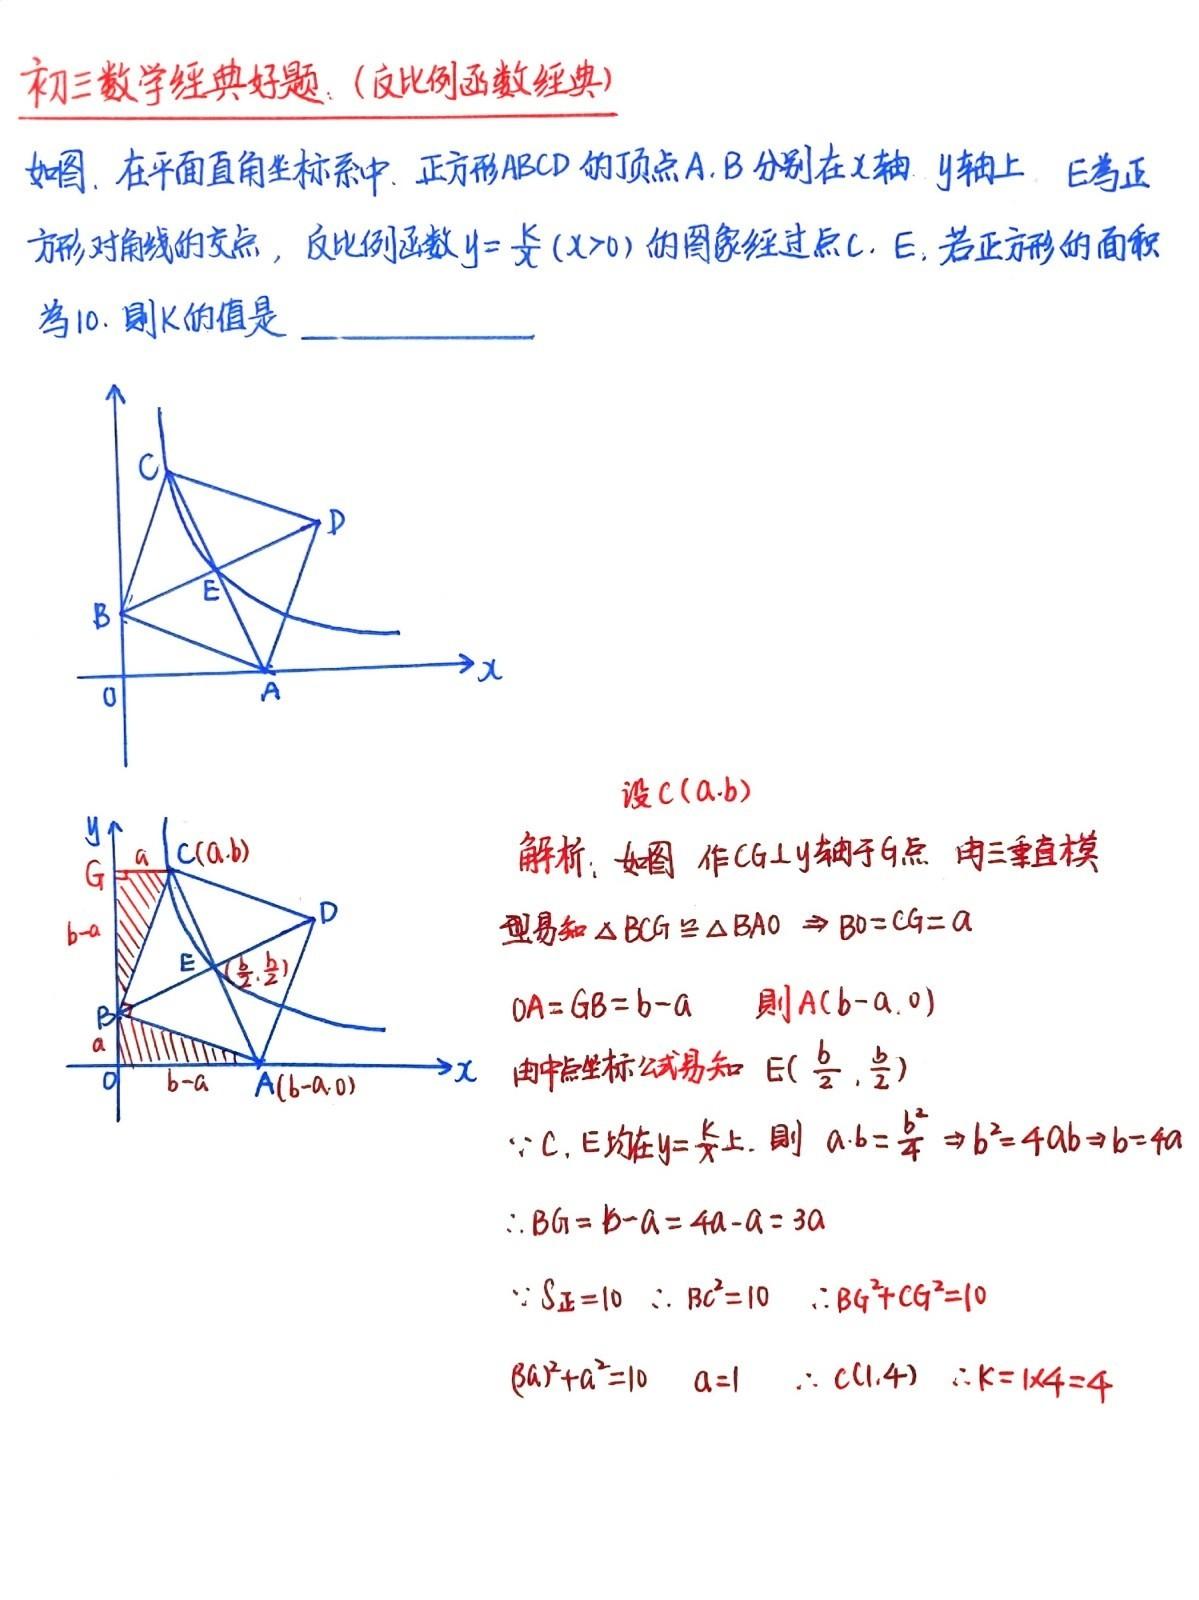 初三数学经典好题:(反比例函数经典)
如图.在平面直角坐标系中.正方形ABCD的顶点A.B分别在x轴 y轴上 E為正
方形对角线的交点,反比例函数y=k/x(x>0)的图象经过点C.E,若正方形的面积
為10.則K的值是
C
D
E
B
O
A
x
设C(a.b)
y
G
a
C(a.b)
b-a
D
E
(b/2.b/2)
B
a
O
b-a
A(b-a.0)
x
解析:如图 作CG⊥y轴于G点 由三垂直模
型易知△BCG≌△BAO⇒BO=CG=a
OA=GB=b-a 則A(b-a.0)
由中点坐标公式易知 E(b/2,b/2)
∵C.E均在y=k/x上.則 a·b=b²/4⇒b²=4ab⇒b=4a
∴BG=b-a=4a-a=3a
∵S正=10 ∴BC²=10 ∴BG²+CG²=10
(3a)²+a²=10 a=1 ∴C(1.4) ∴K=1×4=4